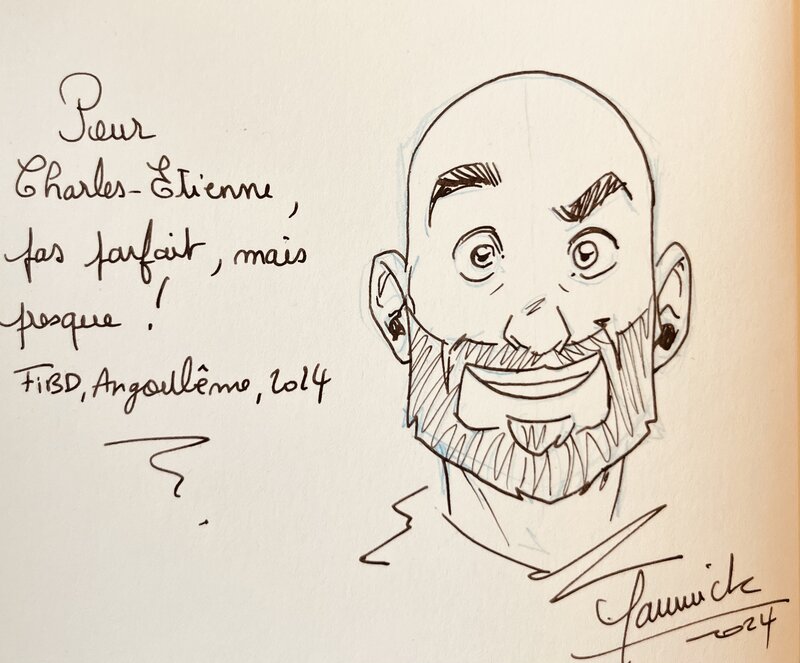 Pour
Charles-Etienne,
pas parfait, mais
presque !
FiBD, Angoulême, 2024
Yannick
2024